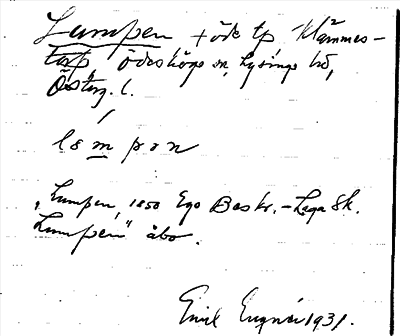 Lumpen + öde tp Klämmes-
torp Ödeshögs sn, Lysings hd,
Österg. l.
lɵmpən
"Lumpen, 1850 Ego Beskr. - Laga Sk.
Lumpen" åbo.
Emil 1931.